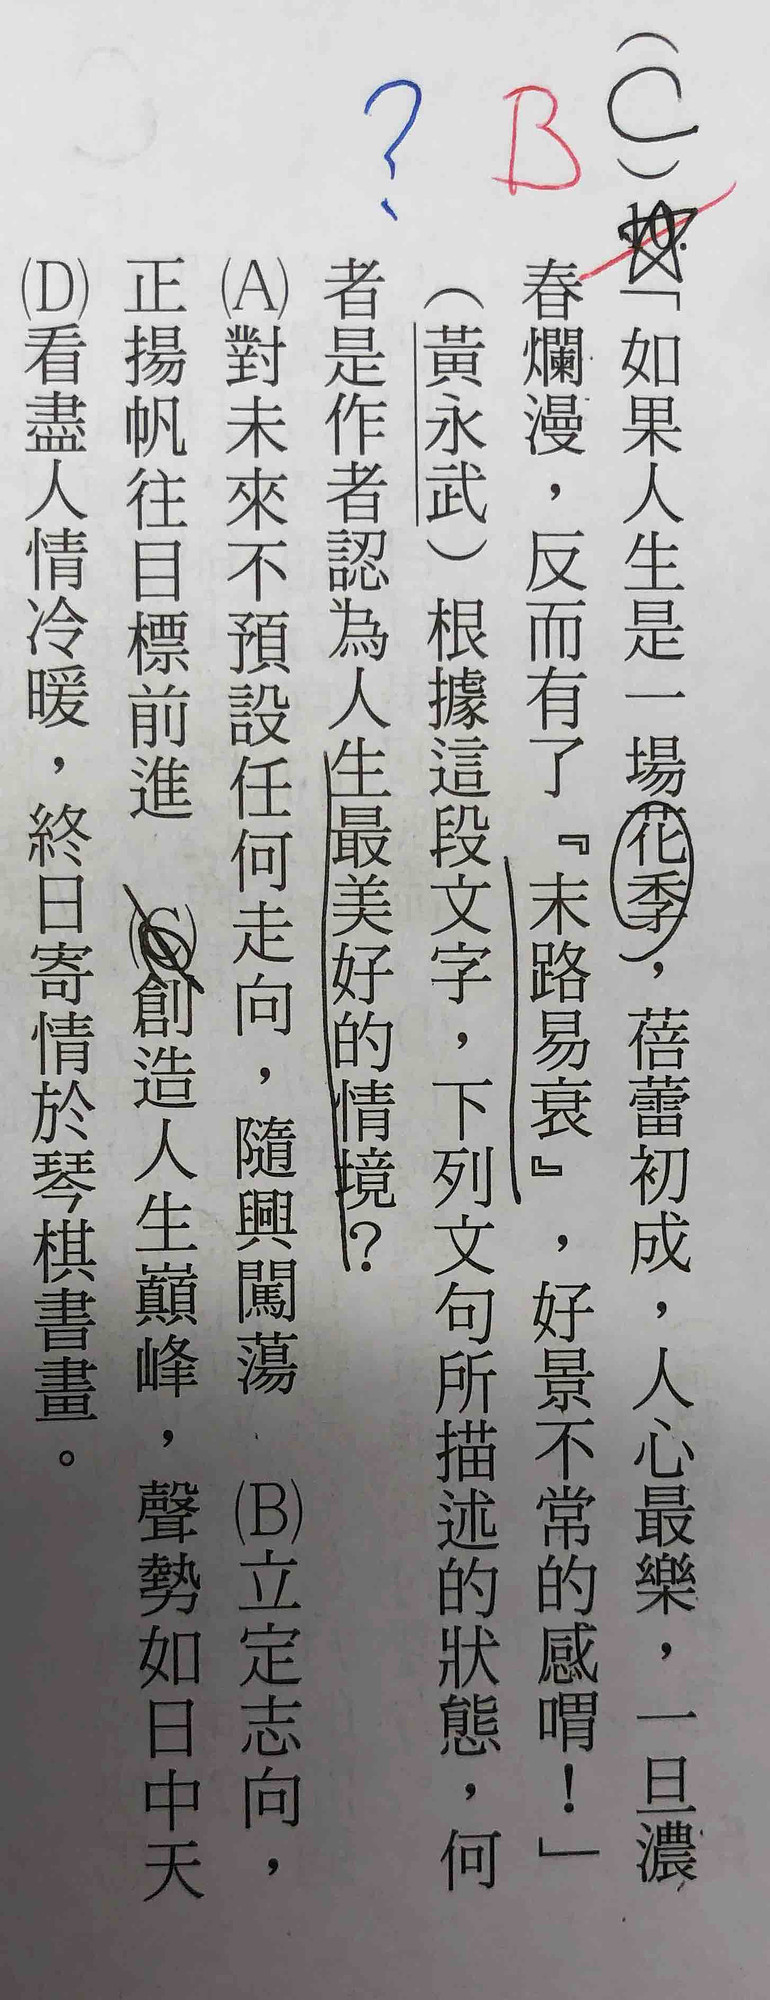 (C)10.「如果人生是一場花季，蓓蕾初成，人心最樂，一旦濃
B
春爛漫，反而有了『末路易衰』，好景不常的感喟！」
?
（黃永武）根據這段文字，下列文句所描述的狀態，何
者是作者認為人生最美好的情境？
(A)對未來不預設任何走向，隨興闖蕩 (B)立定志向，
正揚帆往目標前進 (C)創造人生巔峰，聲勢如日中天
(D)看盡人情冷暖，終日寄情於琴棋書畫。